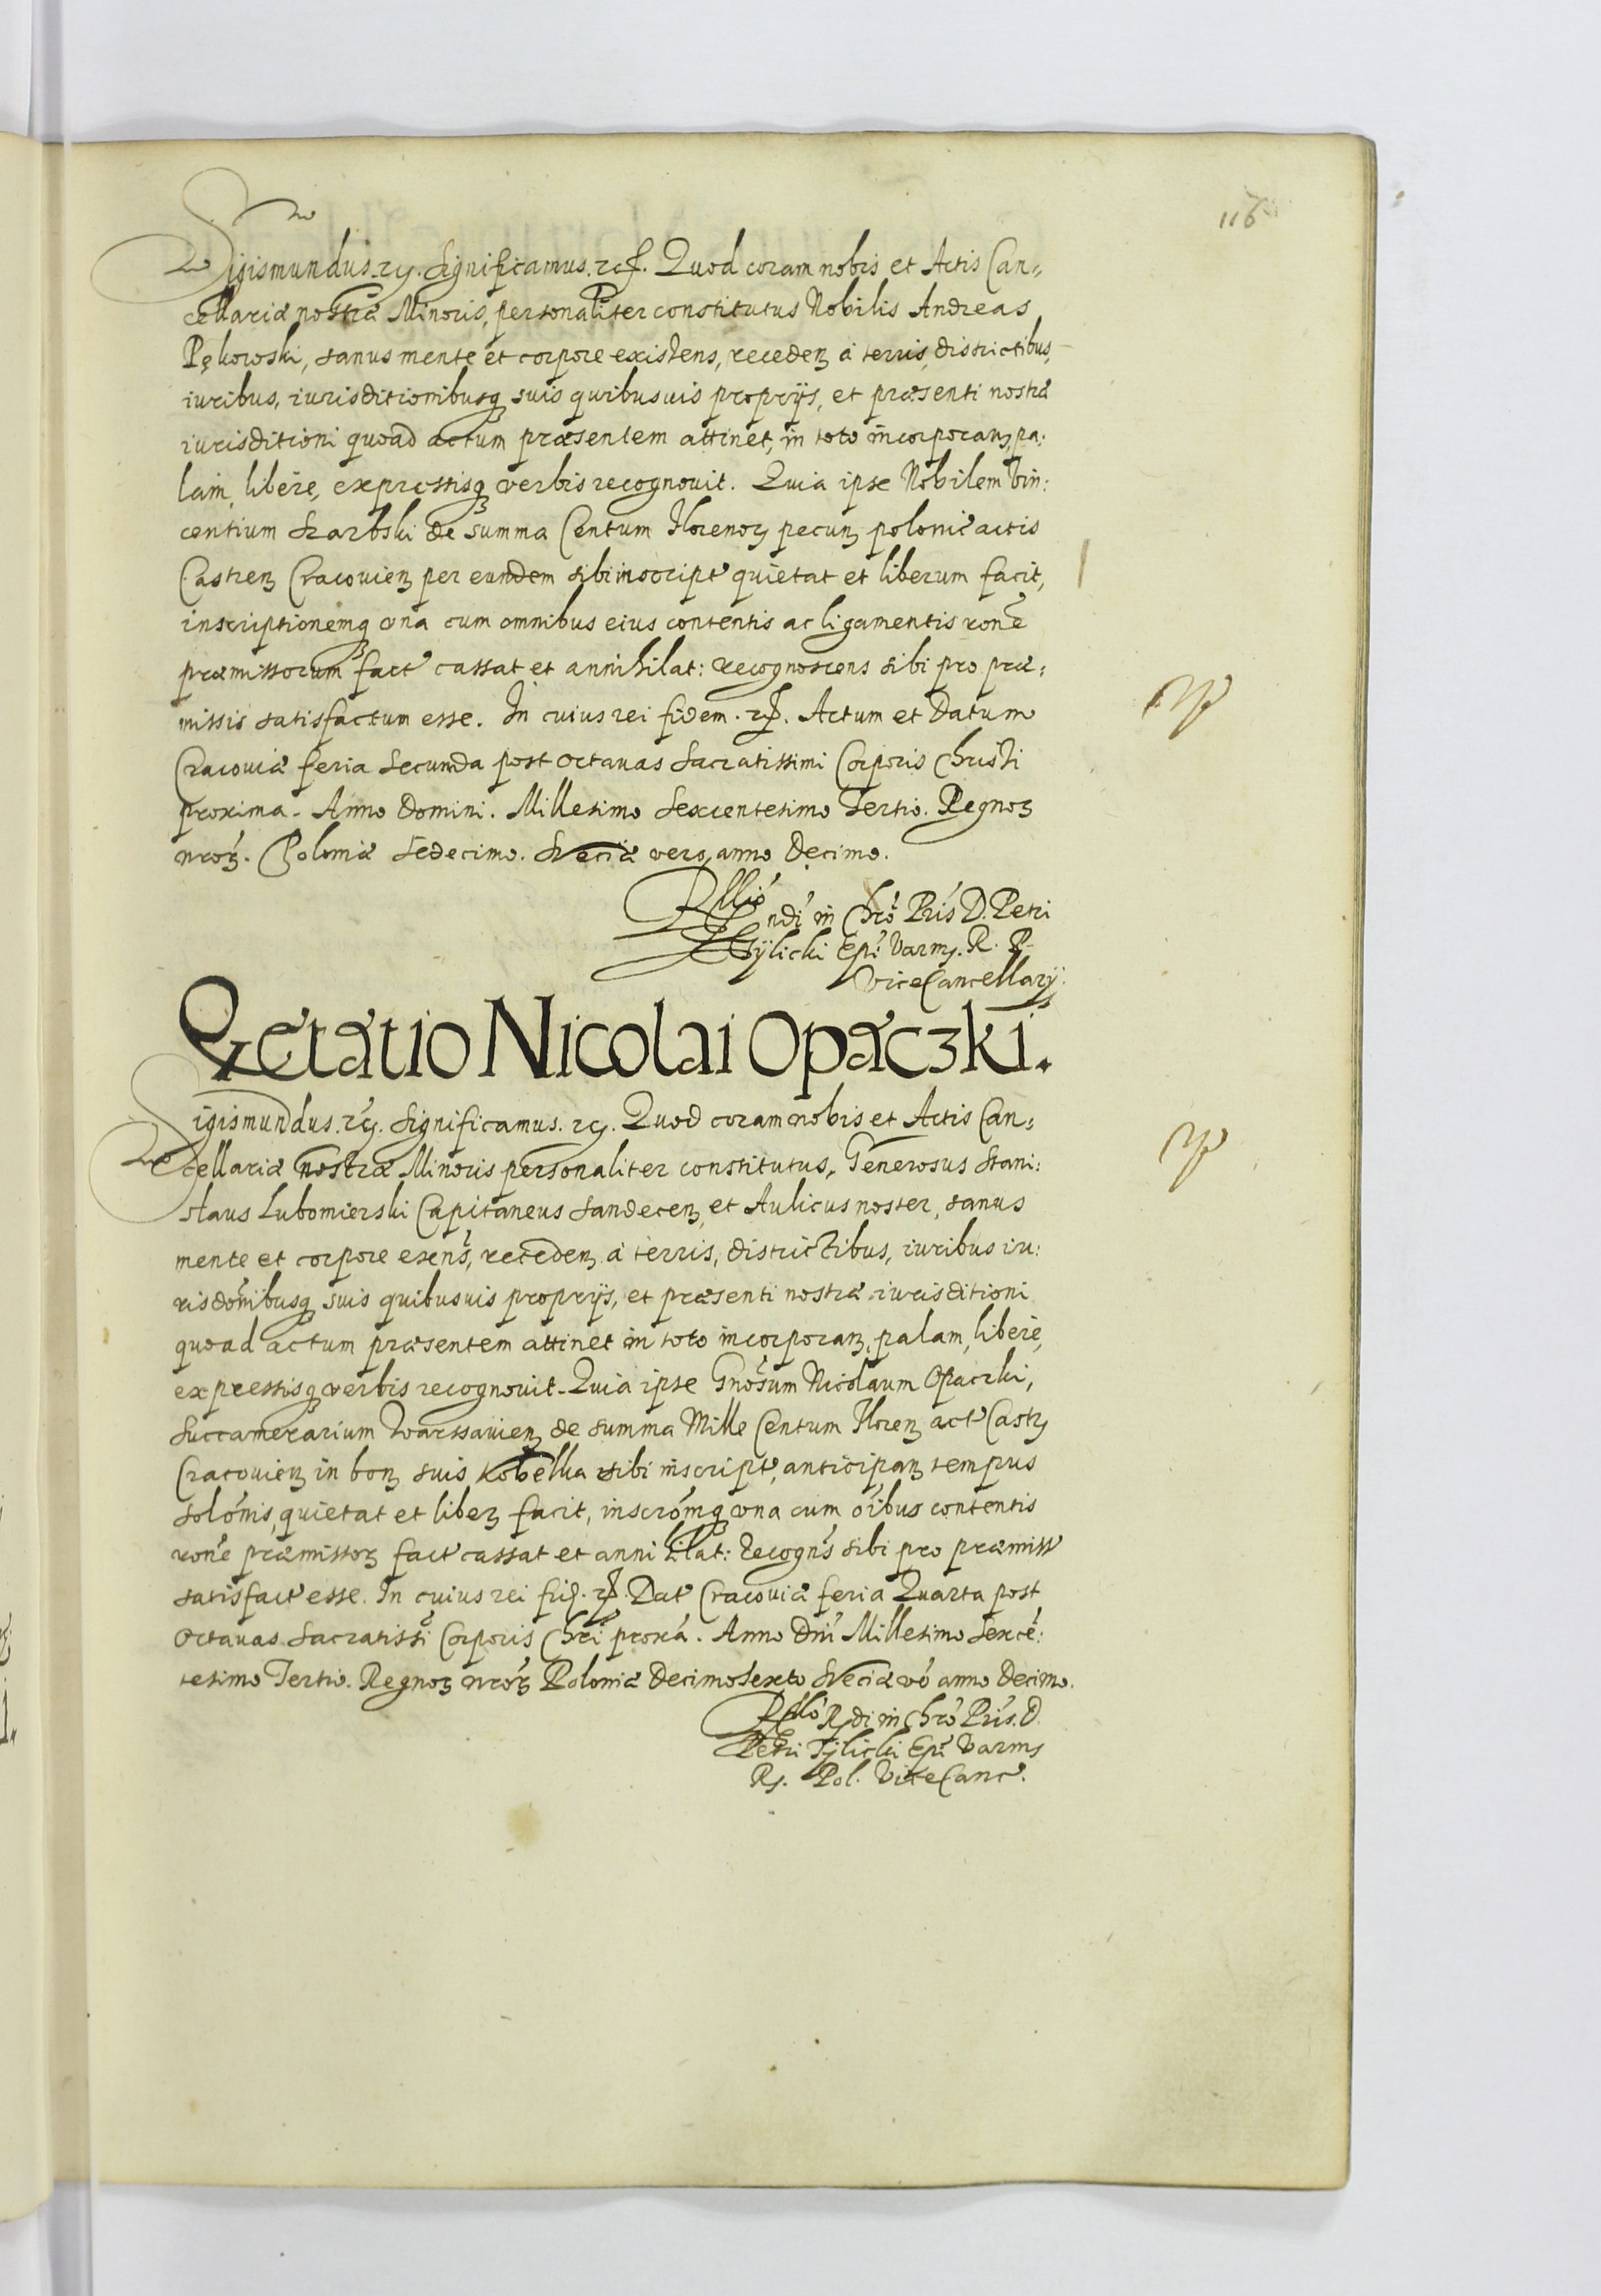 116
Sigismundus rc. Significamus. rc. Quod coram nobis et Actis Can„
cellariæ nostræ Minoris, personaliter constitutus Nobilis Andreas
Pękowski, sanus mente et corpore existens, recedeñ à terris, districtibus,
iuribus, iurisditionibusq suis quibusuis proprijs, et præsenti nostræ
iurisditioni quoad actum præsentem attinet, in toto incorporañ, pa:
lam, libere, expressisq verbis recognouit. Quia ipse Nobilem Vin:
centium Skarbski de summa Centum Florenoꝝ pecuñ polonic̃ actis
Castreñ Cracouieñ per eundem sibi inscript̃ quietat et liberum facit,
inscriptionemq una cum omnibus eius contentis ac ligamentis rone
præmissorum fact̃ cassat et annihilat: recognoscens sibi pro præ:
missis satisfactum esse. In cuius rei fidem. rc. Actum et Datum
Cracouiæ feria Secunda post Octauas Sacratissimi Corporis Christi
proxima. Anno Domini. Millesimo Sexcentesimo Tertio. Regnoꝝ
nroꝝ. Poloniæ Sedecimo. Sueciæ vero, anno Decimo.
Rllió
ndi in Chrõ Pris D. Petri
Tylicki Epi Varmꝭ. R. P.
ViceCancellarij.
Qetatio Nicolai Opaczki.
Sigismundus. rc. Significamus. rc. Quod coram nobis et Actis Can„
cellariæ nostræ Minoris personaliter constitutus, Generosus Stani:
slaus Lubomierski Capitaneus Sandeceñ, et Aulicus noster, sanus
mente et corpore exens, recedeñ à terris, districtibus, iuribus iu:
risdonibusq suis quibusuis proprijs, et præsenti nostræ iurisditioni
quoad actum præsentem attinet in toto incorporañ, palam, libere,
expressisq verbis recognouit. Quia ipse Gnosum Nicolaum Opaczki,
Succamerarium Warssauieñ de summa Mille Centum Floreñ act̃ Castꝝ
Cracouieñ in boñ suis Kobelka sibi inscript̃, anticipañ tempus
solonis, quietat et libeꝝ facit, inscromq una cum oibus contentis
rone præmissoꝝ fact̃ cassat et annihilat: Recogns sibi pro præmiss̃
satisfact̃ esse. In cuius rei fid. rc. Dat̃ Cracouiæ feria Quarta post
Octauas Sacratissi Corporis Chri proxa. Anno Dni Millesimo Sexcẽ:
tesimo Tertio. Regnoꝝ nroꝝ Poloniæ Decimosexto Sueciæ vo anno Decimo.
Rllo Rdi in Chro Pris. D.
Petri Tylicki Epi Varmꝭ
Rꝭ. Pol. ViceCanc̃.